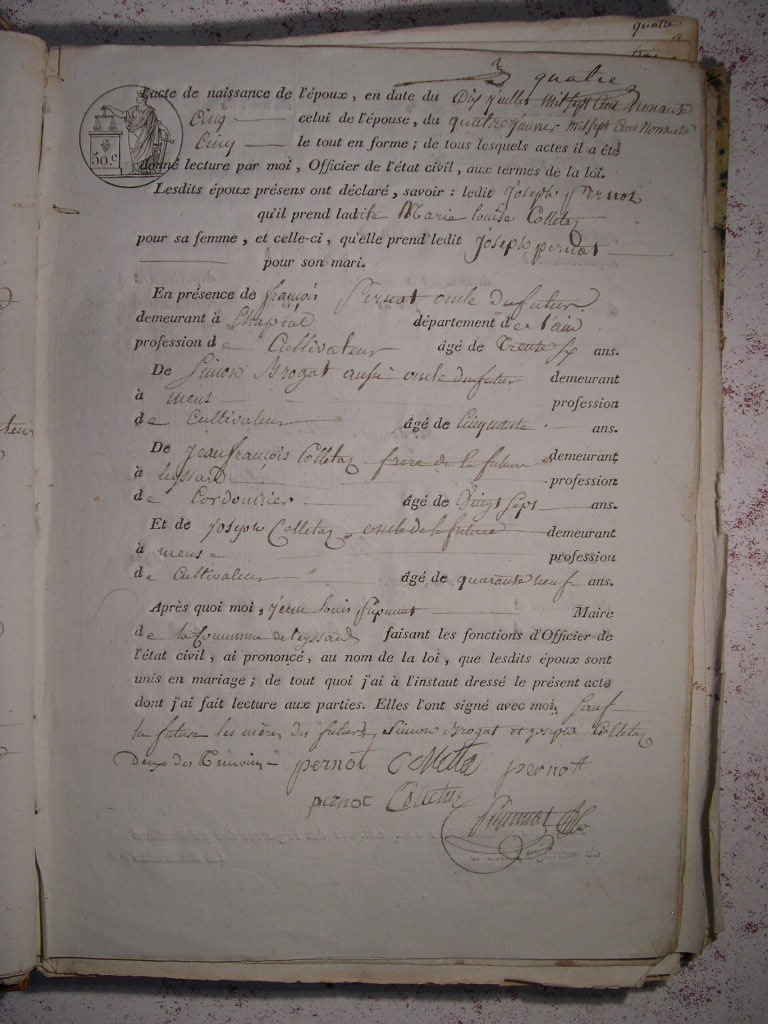 quatre
quatre
l'acte de naissance de l'époux, en date du Dix juillet mil sept Cent Nonante
Cinq celui de l'épouse, du quatre janvier mil sept Cent Nonante
Cinq le tout en forme ; de tous lesquels actes il a été
donné lecture par moi, Officier de l'état civil, aux termes de la loi.
50.c
Lesdits époux présens ont déclaré, savoir : ledit Joseph Pernot
qu'il prend ladite Marie Louise Colletaz
pour sa femme, et celle-ci, qu'elle prend ledit joseph pernot
pour son mari.
En présence de françois Pernot oncle du futur
demeurant à Chapiat département de l'ain
profession de Cultivateur âgé de Trente Six ans.
De Simon Brogat aussi oncle du futur demeurant
à mens profession
de Cultivateur âgé de Cinquante ans.
De jean françois Colletaz frere de la future demeurant
à Leyssard profession
de Cordonnier âgé de Vingt Sept ans.
Et de Joseph Colletaz oncle de la future demeurant
à mens profession
de Cultivateur âgé de quarante neuf ans.
Après quoi moi, jean louis Maire
de la Commune de Leyssard faisant les fonctions d'Officier de
l'état civil, ai prononcé, au nom de la loi, que lesdits époux sont
unis en mariage ; de tout quoi j'ai à l'instant dressé le présent acte
dont j'ai fait lecture aux parties. Elles l'ont signé avec moi, Sauf
la future les mères des futurs, Simon Brogat et joseph Colletaz
deux des Témoins pernot Colletta pernot
pernot Colletaz